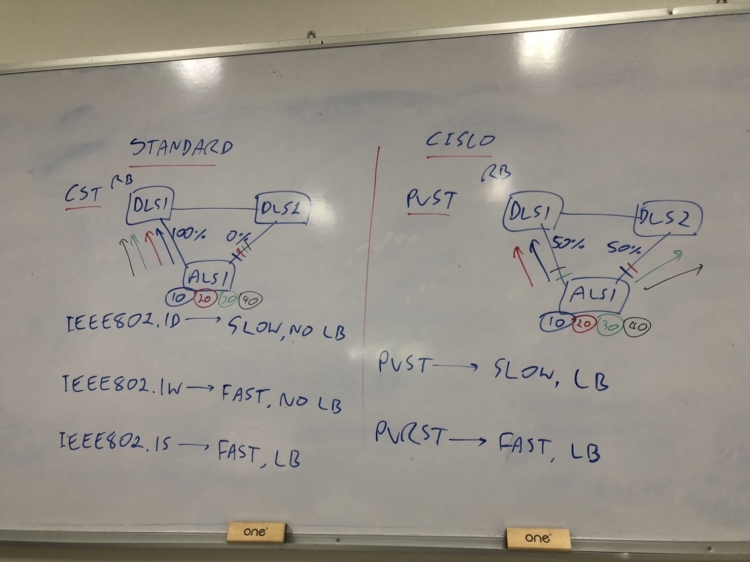 STANDARD
CST
RB
DLS1
DLS2
100%
0%
ALS1
10 20 30 40
IEEE802.1D → SLOW, NO LB
IEEE802.1W → FAST, NO LB
IEEE802.1S → FAST, LB
CISCO
PVST
RB
DLS1
DLS2
50%
50%
ALS1
10 20 30 40
PVST → SLOW, LB
PVRST → FAST, LB
one
one